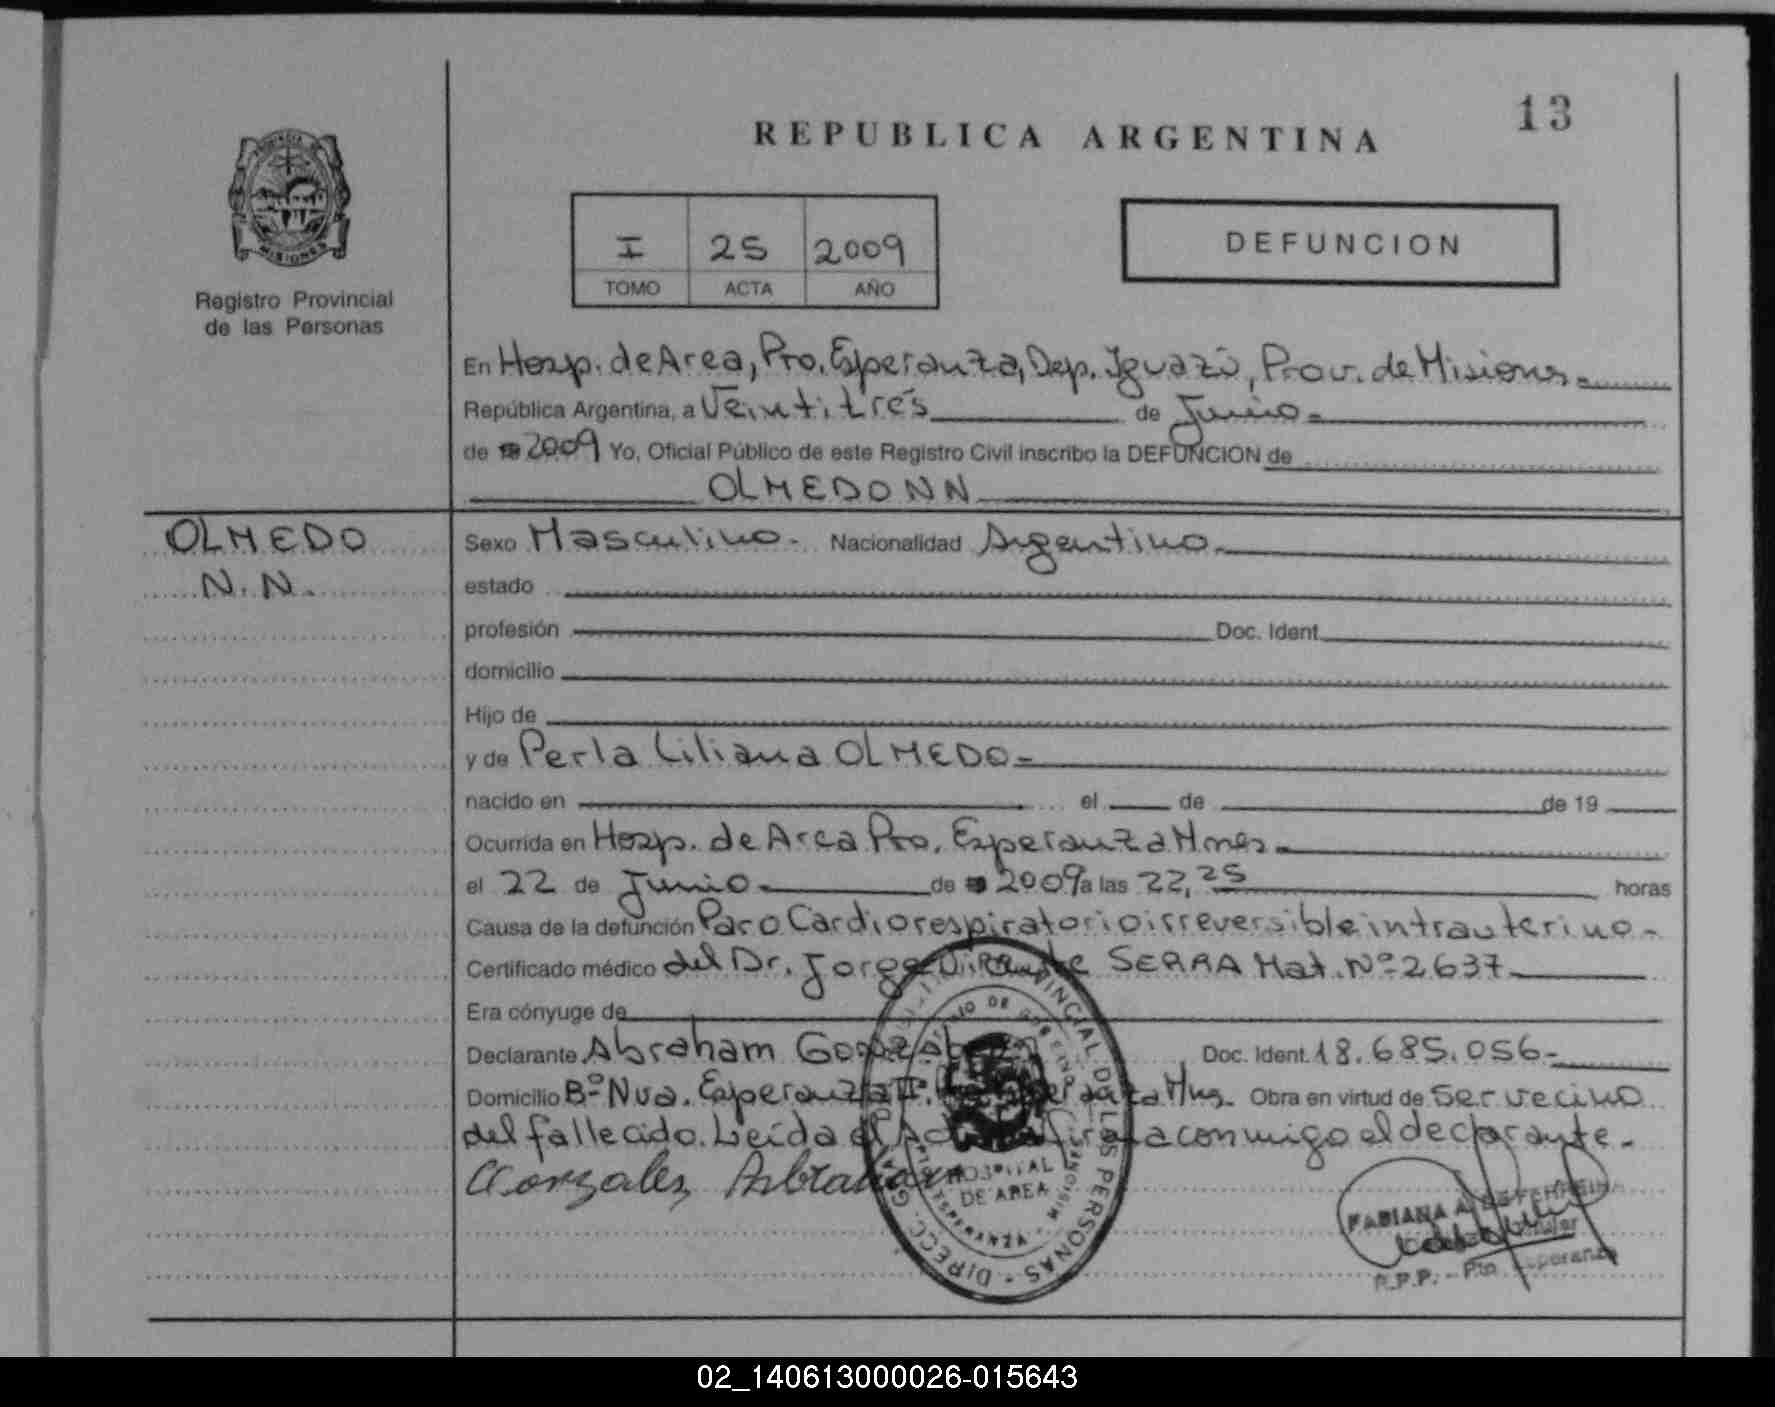 13
REPUBLICA ARGENTINA
PROVINCIA DE
MISIONES
Registro Provincial
de las Personas
I 25 2009
TOMO ACTA AÑO
DEFUNCION
En Hosp. de Area, Pto. Esperanza, Dep. Iguazú, Prov. de Misiones.
República Argentina, a Veintitrés de Junio
de 2009 Yo, Oficial Público de este Registro Civil inscribo la DEFUNCION de
OLMEDO N N
OLMEDO
N. N.
Sexo Masculino. Nacionalidad Argentino.
estado
profesión Doc. Ident.
domicilio
Hijo de
y de Perla Liliana OLMEDO
nacido en el de de 19
Ocurrida en Hosp. de Area Pto. Esperanza Mnes.
el 22 de Junio de 2009 a las 22,25 horas
Causa de la defunción Paro Cardiorespiratorio irreversible intrauterino.
Certificado médico del Dr. Jorge SERRA Mat. Nº 2637
Era cónyuge de
Declarante Abraham Doc. Ident. 18.685.056
Domicilio Bº Nva. Esperanza II. Mnes. Obra en virtud de ser vecino
del fallecido. Leída el Acta firma conmigo el declarante.
Gonzales Abraham
DIRECC. GRAL. PROVINCIAL DE LAS PERSONAS
HOSPITAL
DE AREA
FABIANA A.
R.P.P. - Pto. Esperanza
02_140613000026-015643